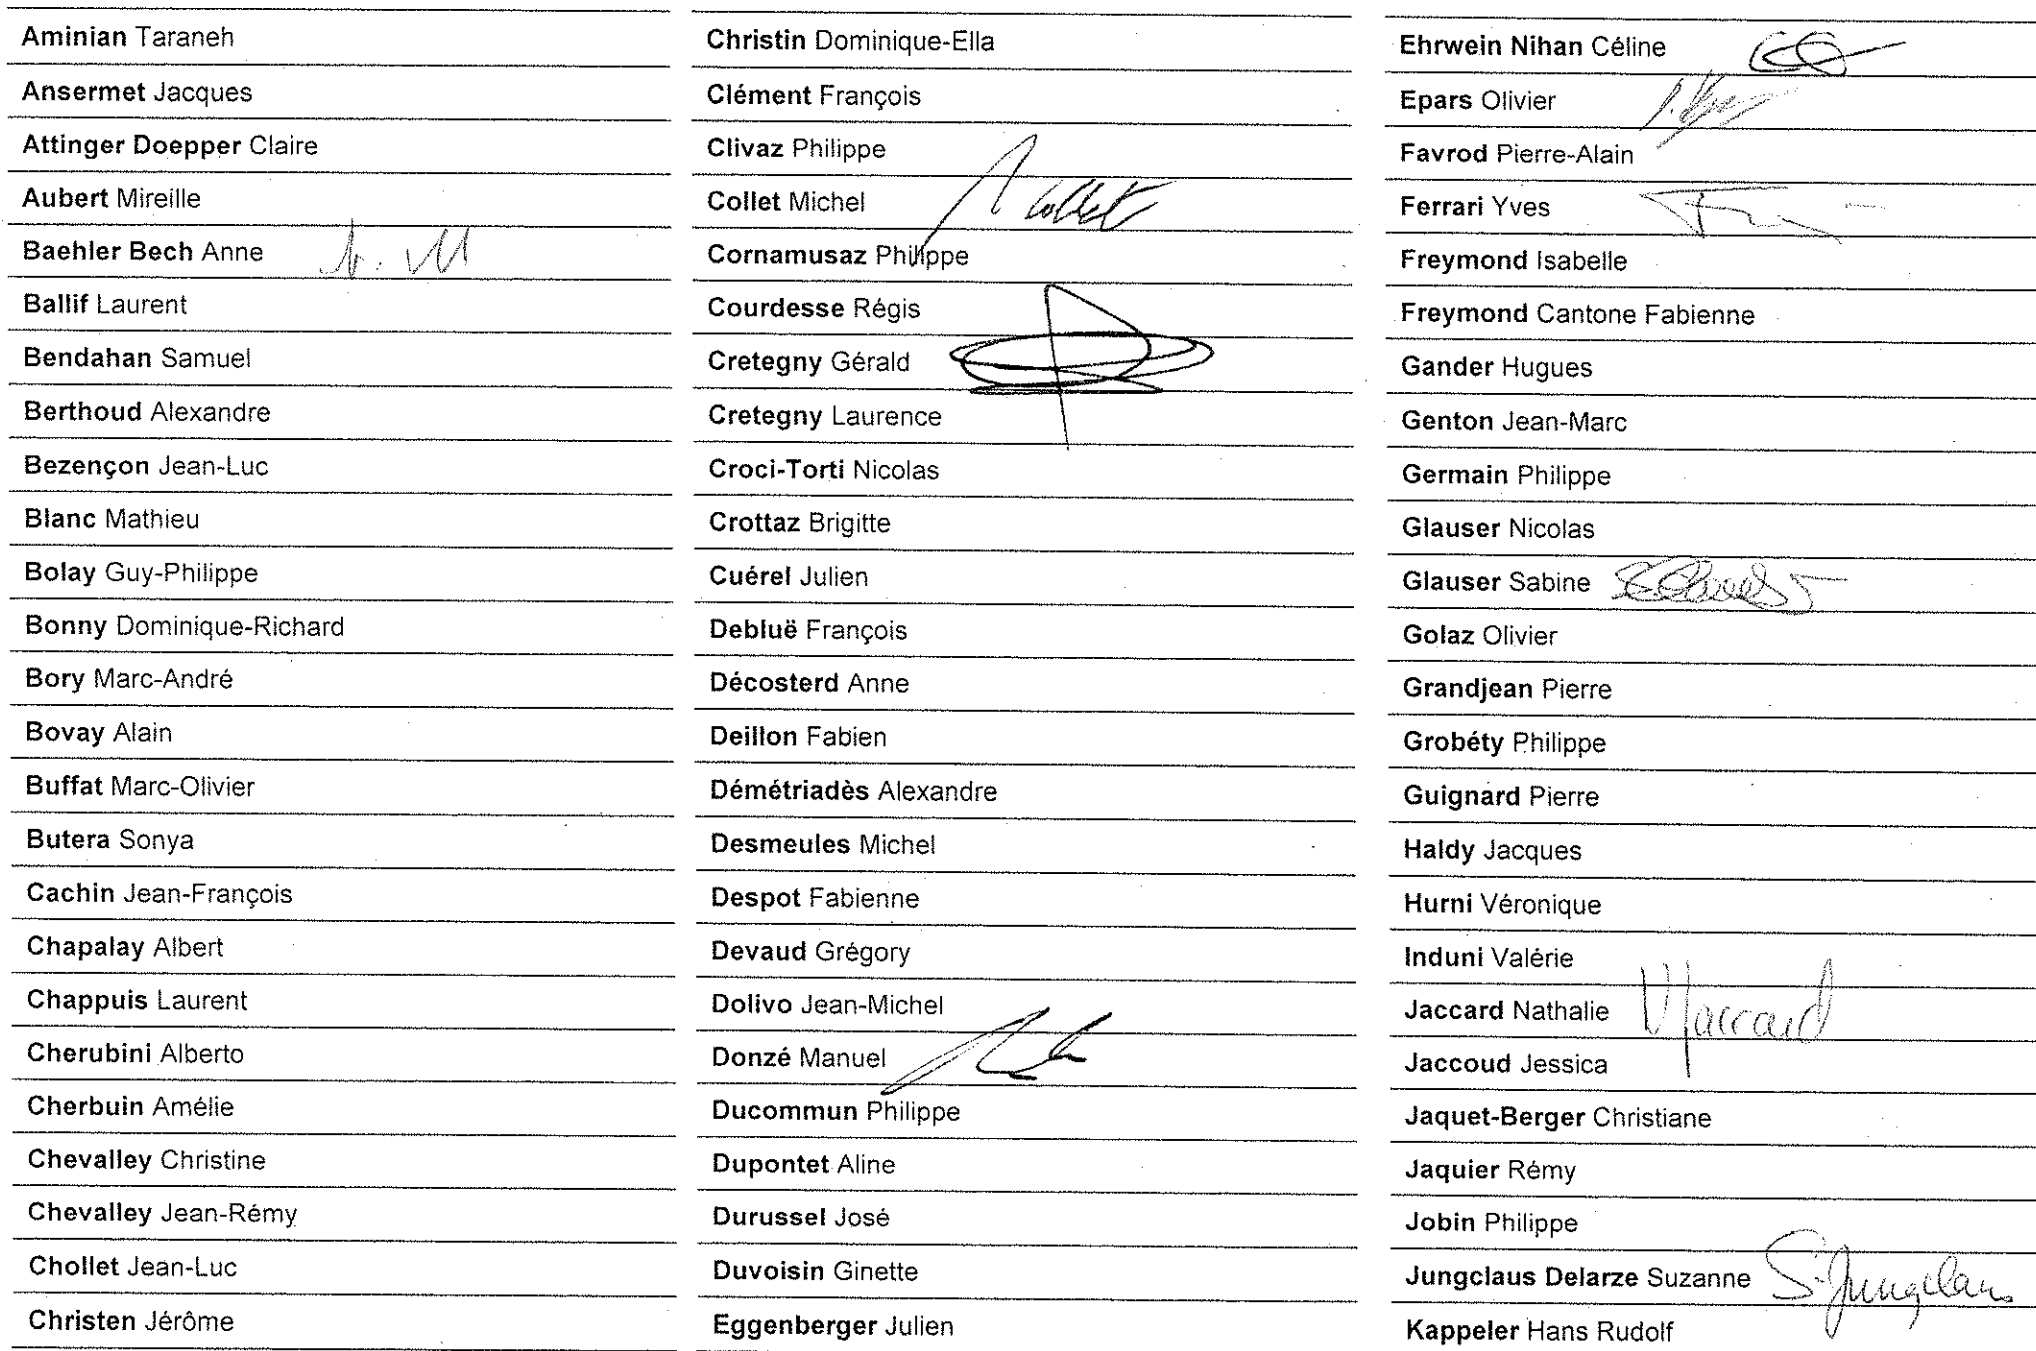 Aminian Taraneh
Ansermet Jacques
Attinger Doepper Claire
Aubert Mireille
Baehler Bech Anne
Ballif Laurent
Bendahan Samuel
Berthoud Alexandre
Bezençon Jean-Luc
Blanc Mathieu
Bolay Guy-Philippe
Bonny Dominique-Richard
Bory Marc-André
Bovay Alain
Buffat Marc-Olivier
Butera Sonya
Cachin Jean-François
Chapalay Albert
Chappuis Laurent
Cherubini Alberto
Cherbuin Amélie
Chevalley Christine
Chevalley Jean-Rémy
Chollet Jean-Luc
Christen Jérôme
Christin Dominique-Ella
Clément François
Clivaz Philippe
Collet Michel Collet
Cornamusaz Philippe
Courdesse Régis
Cretegny Gérald
Cretegny Laurence
Croci-Torti Nicolas
Crottaz Brigitte
Cuérel Julien
Debluë François
Décosterd Anne
Deillon Fabien
Démétriadès Alexandre
Desmeules Michel
Despot Fabienne
Devaud Grégory
Dolivo Jean-Michel
Donzé Manuel
Ducommun Philippe
Dupontet Aline
Durussel José
Duvoisin Ginette
Eggenberger Julien
Ehrwein Nihan Céline
Epars Olivier
Favrod Pierre-Alain
Ferrari Yves
Freymond Isabelle
Freymond Cantone Fabienne
Gander Hugues
Genton Jean-Marc
Germain Philippe
Glauser Nicolas
Glauser Sabine
Golaz Olivier
Grandjean Pierre
Grobéty Philippe
Guignard Pierre
Haldy Jacques
Hurni Véronique
Induni Valérie
Jaccard Nathalie NJaccard
Jaccoud Jessica
Jaquet-Berger Christiane
Jaquier Rémy
Jobin Philippe
Jungclaus Delarze Suzanne S. Jungclaus
Kappeler Hans Rudolf